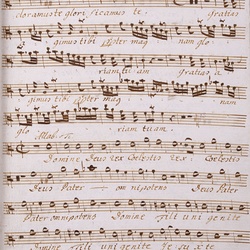 oramus te glorificamus te. gratias
gimus tibi propter mag nam glo
riam tuam gratias a
gimus tibi propter mag nam
glo riam tuam.
Domine Deus rex Coelestis rex Coelestis
Deus Pater omnipotens Deus Pater
Pater omnipotens Domine Fili uni genite
Domine Fili uni genite Je su